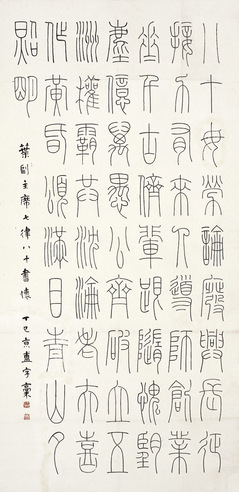 八十毋勞論廢興長征
接力有來人導師創業
垂千古儕輩跟隨愧望
塵億萬愚公齊破立五
洲權霸共沈淪老夫喜
作黃昏頌滿目青山夕
照明
葉副主席七律八十書懷 丁巳